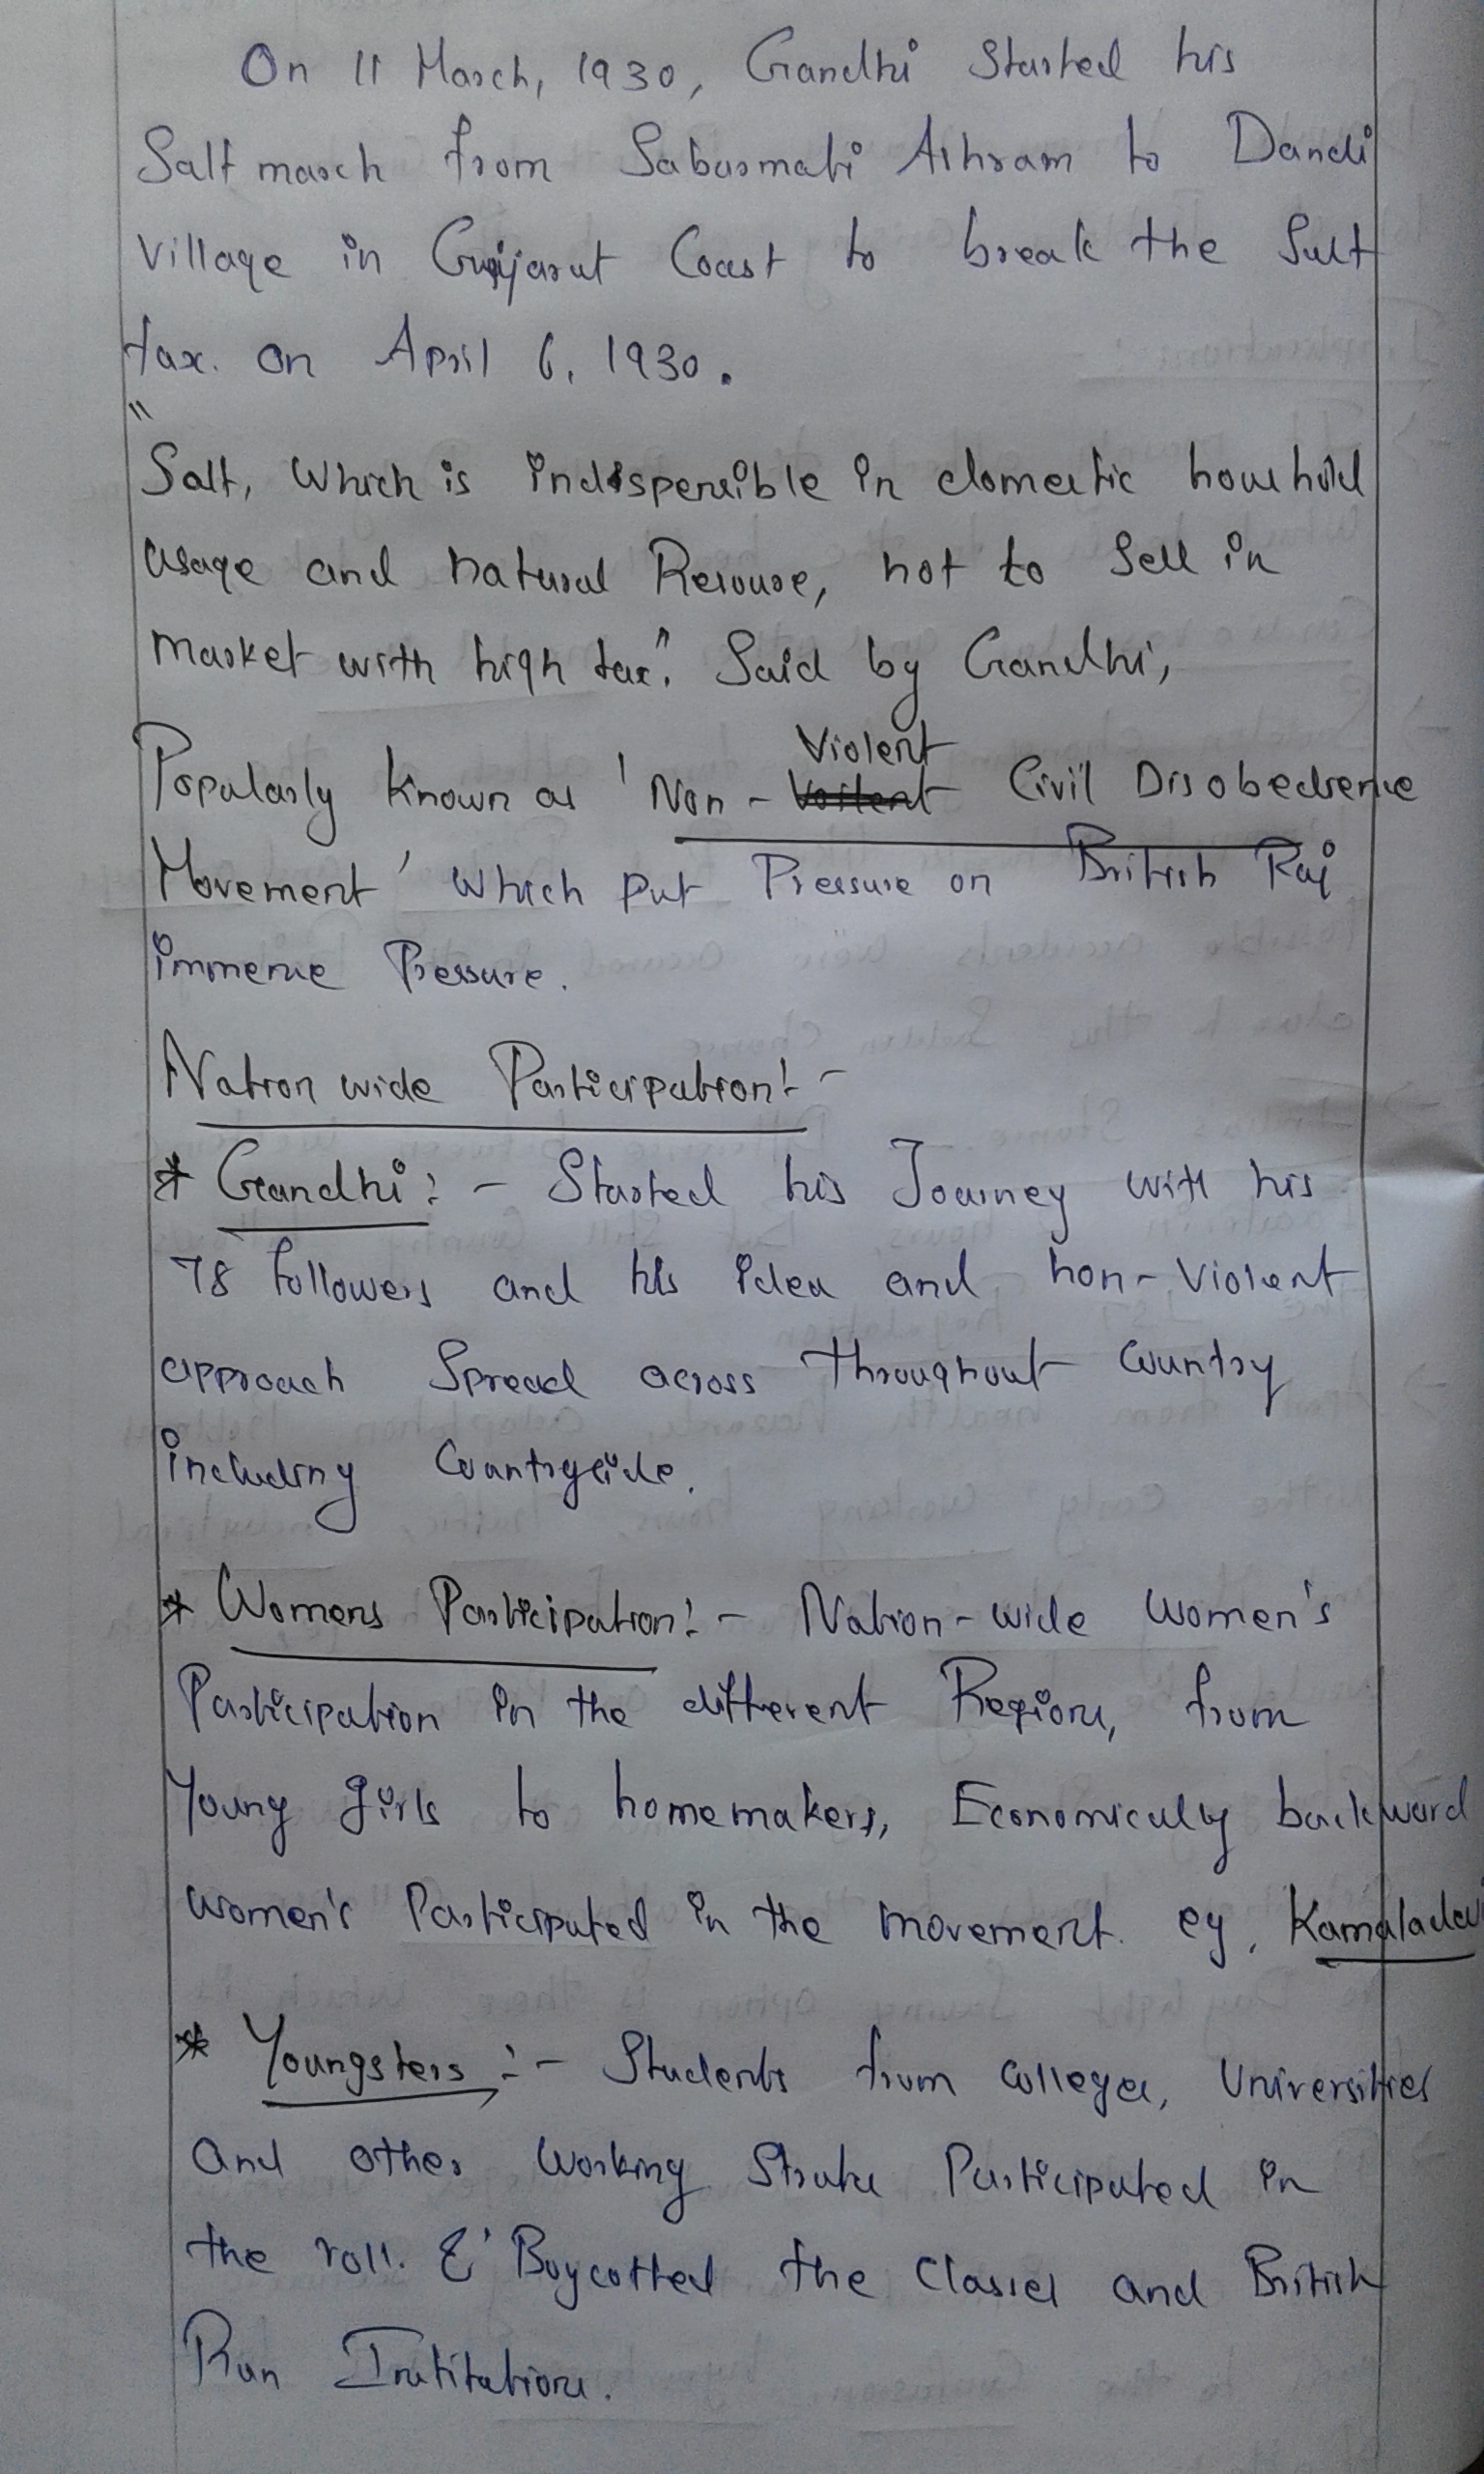 On 11 March, 1930, Gandhi Started his
Salt march from Sabarmati Ashram to Dandi
Village in Gujarat Coast to break the Salt
tax. on April 6, 1930.
"Salt, Which is indispensible in domestic household
usage and natural Resource, not to Sell in
market with high tax". Said by Gandhi,
Popularly known as 'Non-Violent Civil Disobedience
Movement' which put Pressure on British Raj
immense Pressure.
Nation wide Participation:-
* Gandhi:- Started his Journey with his
78 followers and his idea and non-Violent
approach Spread across throughout Country
including Countryside.
* Womens Participation:- Nation-wide women's
Participation in the different Regions, from
Young girls to homemakers, Economically backward
women's Participated in the movement. eg, Kamaladevi
* Youngsters:- Students from colleges, Universities
and other working Strata Participated in
the roll. & Boycotted the Classes and British
Run Institutions.